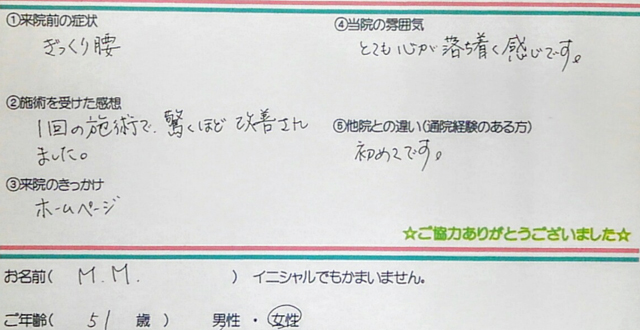 ①来院前の症状
ぎっくり腰
②施術を受けた感想
1回の施術で、驚くほど改善され
ました。
③来院のきっかけ
ホームページ
④当院の雰囲気
とても心が落ち着く感じです。
⑤他院との違い(通院経験のある方)
初めてです。
☆ご協力ありがとうございました☆
お名前( M.M. ) イニシャルでもかまいません。
ご年齢( 51 歳 ) 男性 ・ 女性